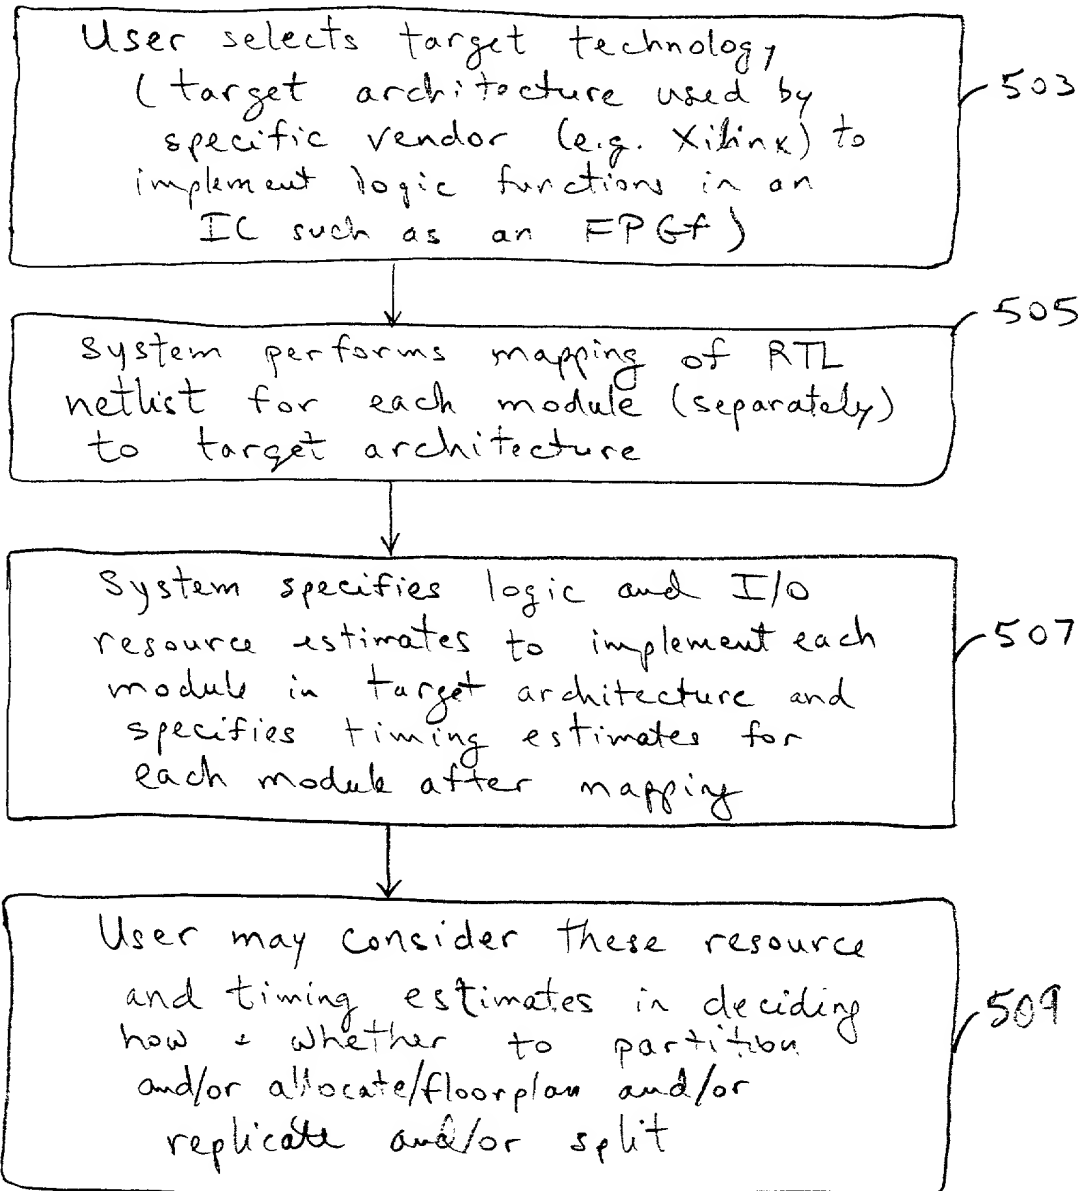 User selects target technology
(target architecture used by
specific vendor (e.g. Xilinx) to
implement logic functions in an
IC such as an FPGA)
503
505
System performs mapping of RTL
netlist for each module (separately)
to target architecture
System specifies logic and I/O
resource estimates to implement each
module in target architecture and
specifies timing estimates for
each module after mapping
507
User may consider these resource
and timing estimates in deciding
how + whether to partition
and/or allocate/floorplan and/or
replicate and/or split
509